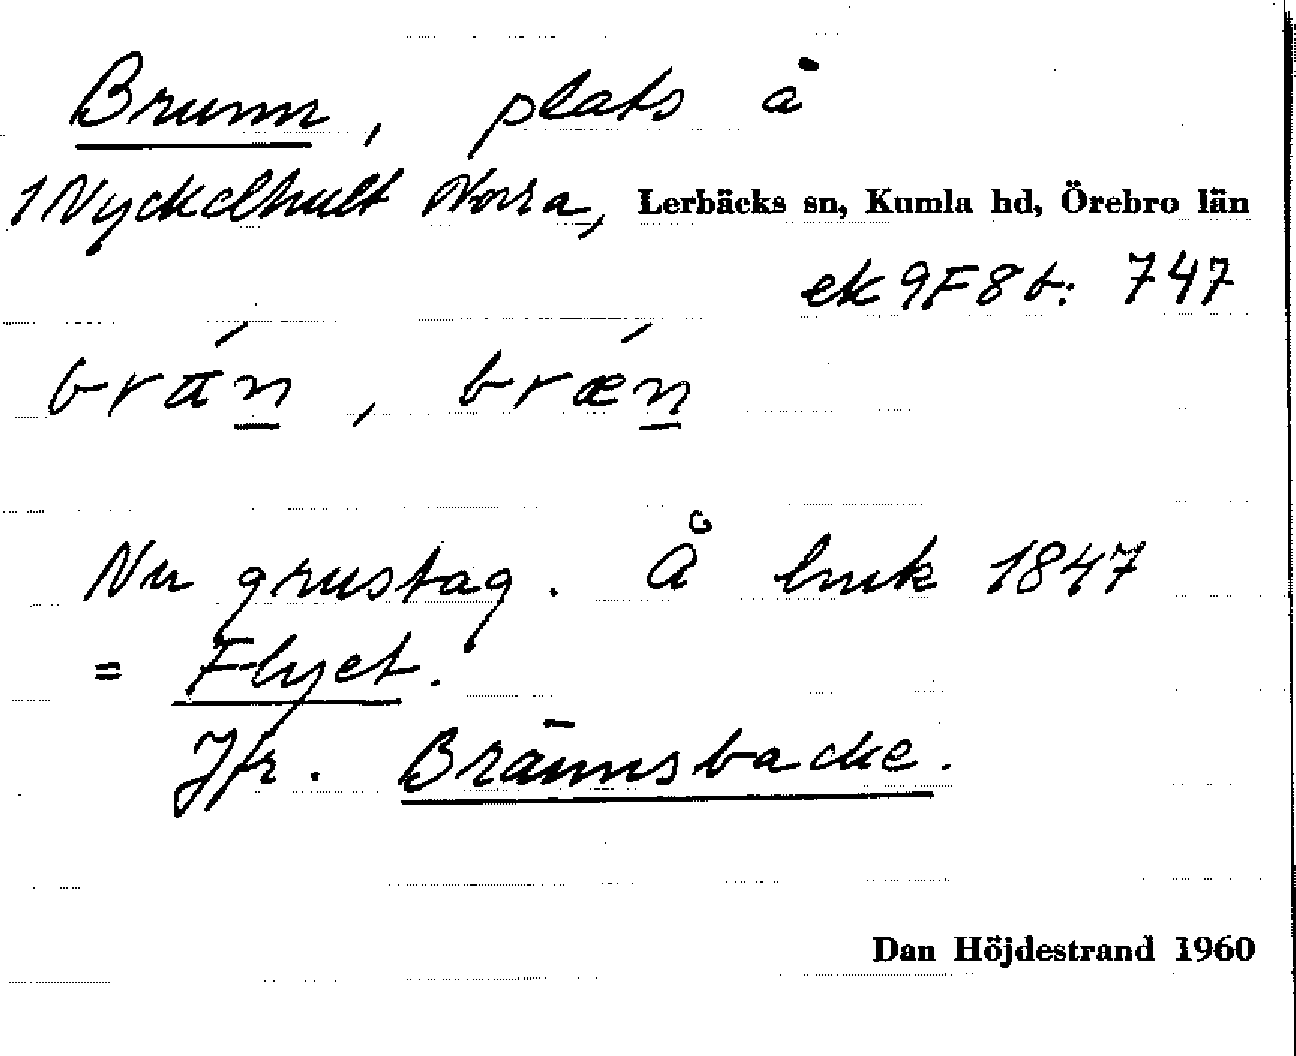 Brunn, plats å
1 Nyckelhult Norra, Lerbäcks sn, Kumla hd, Örebro län
ek 9F8b: 747
brän, bræn
Nu grustag. Å lmk 1847
= Flyet.
Jfr. Brännsbacke.
Dan Höjdestrand 1960